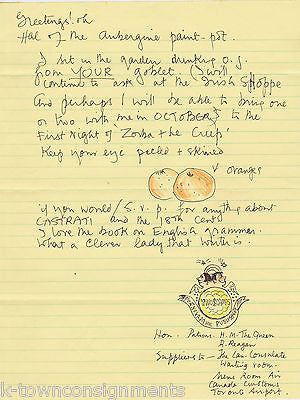 Greetings! oh
Hal of the Aubergine paint-pot.
I sit in the garden drinking o.j.
from YOUR goblet. (I will
continue to ask at the Irish SHOPPE
And perhaps I will be able to bring one
or two with me in OCTOBER) to the
First Night of Zorba & the Creeps'
Keep your eye peeled & skined
oranges
if you would / S.v.p. for anything about
CASTRATI and the 18th Cent.
I love the book on English grammer.
What a clever lady that writer is.
Hon. Patron: H.M. The Queen
R. Reagan
Suppliers to - The Can. Consulate
Waiting room.
Mens Room Air
Canada Customs
Toronto Airport.
k-townconsignments